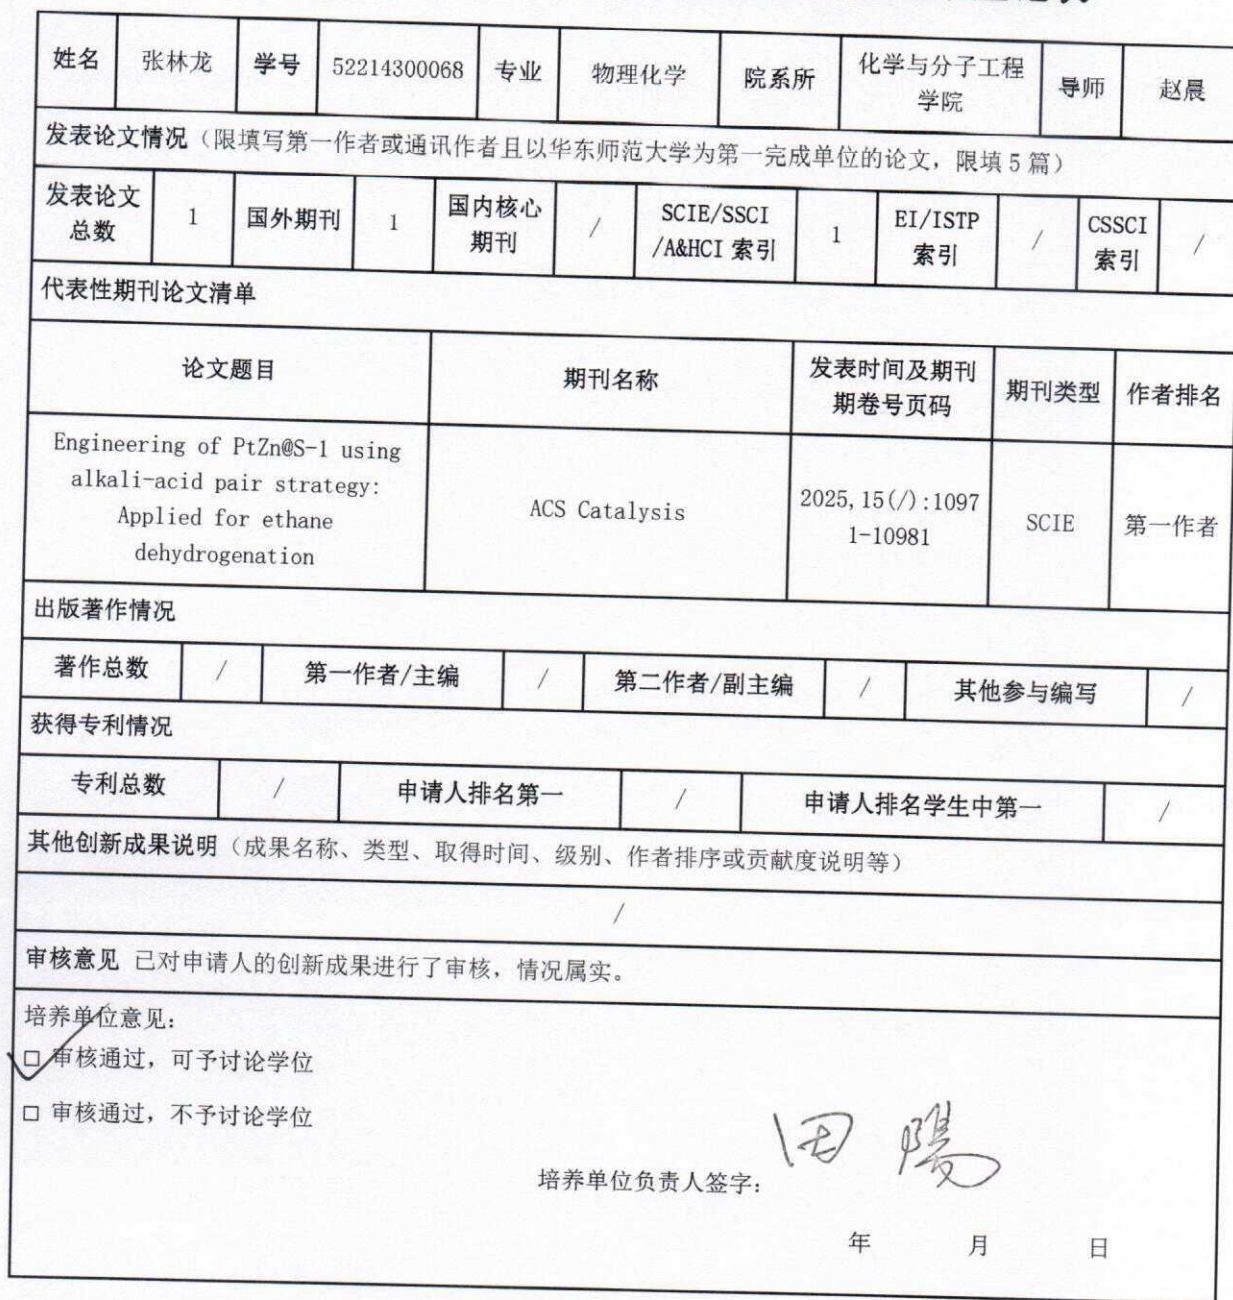 姓名 张林龙 学号 52214300068 专业 物理化学 院系所 化学与分子工程 导师 赵晨
学院
发表论文情况（限填写第一作者或通讯作者且以华东师范大学为第一完成单位的论文，限填 5 篇）
发表论文 1 国外期刊 1 国内核心 / SCIE/SSCI 1 EI/ISTP / CSSCI /
总数 期刊 /A&HCI 索引 索引 索引
代表性期刊论文清单
论文题目 期刊名称 发表时间及期刊 期刊类型 作者排名
期卷号页码
Engineering of PtZn@S-1 using
alkali-acid pair strategy:
Applied for ethane
dehydrogenation
ACS Catalysis
2025, 15(/):1097
1-10981
SCIE
第一作者
出版著作情况
著作总数 / 第一作者/主编 / 第二作者/副主编 / 其他参与编写 /
获得专利情况
专利总数 / 申请人排名第一 / 申请人排名学生中第一 /
其他创新成果说明（成果名称、类型、取得时间、级别、作者排序或贡献度说明等）
/
审核意见 已对申请人的创新成果进行了审核，情况属实。
培养单位意见：
□ 审核通过，可予讨论学位
□ 审核通过，不予讨论学位
培养单位负责人签字： 田陽
年 月 日